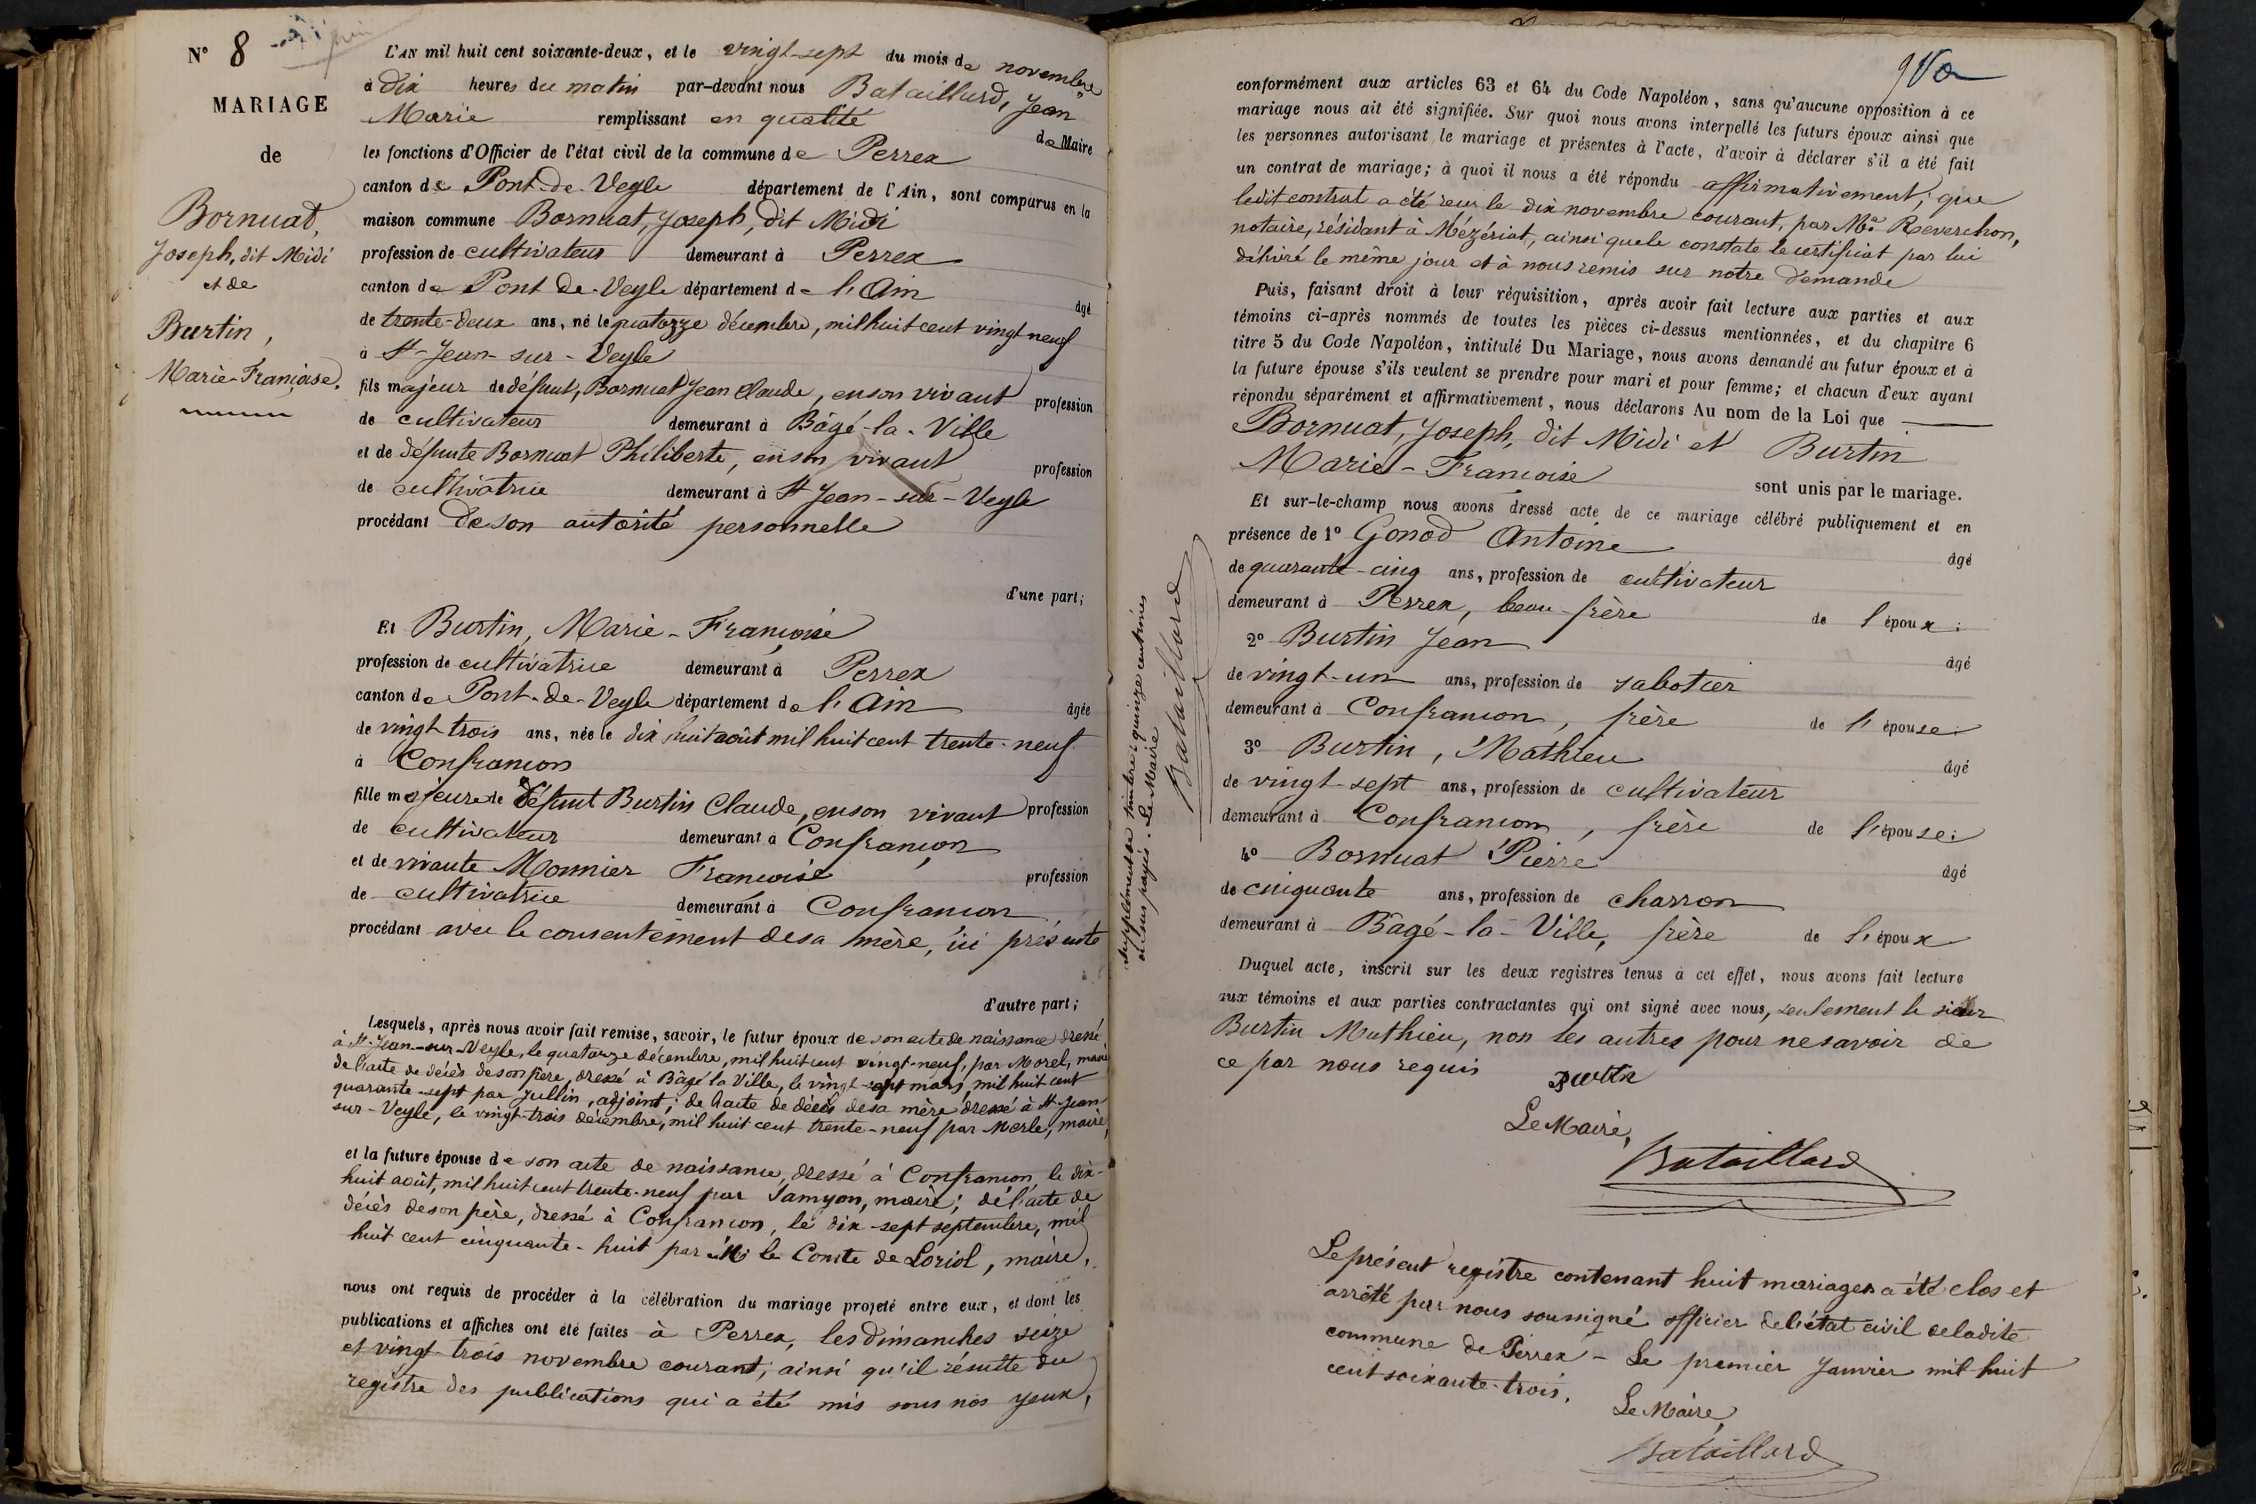 N° 8
MARIAGE
de
Bornuat,
Joseph, dit Midi
et de
Burtin,
Marie-Françoise.
L'AN mil huit cent soixante-deux, et le vingt-sept du mois de novembre
à dix heures du matin par-devant nous Bataillard, Jean
Marie remplissant en qualité de Maire
les fonctions d'Officier de l'état civil de la commune de Perrex
canton de Pont-de-Veyle département de l'Ain, sont comparus en la
maison commune Bornuat, Joseph, dit Midi
profession de cultivateur demeurant à Perrex
canton de Pont-de-Veyle département de l'Ain âgé
de trente-deux ans, né le quatorze décembre, mil huit cent vingt neuf
à St-Jean-sur-Veyle
fils majeur de défunt, Bornuat Jean Claude, en son vivant profession
de cultivateur demeurant à Bâgé-la-Ville
et de défunte Bornuat Philiberte, en son vivant profession
de cultivatrice demeurant à St Jean-sur-Veyle
procédant de son autorité personnelle
d'une part;
Et Burtin, Marie-Françoise
profession de cultivatrice demeurant à Perrex
canton de Pont-de-Veyle département de l'Ain âgée
de vingt-trois ans, née le dix huit août mil huit cent trente-neuf
à Confrançon
fille majeure de défunt Burtin Claude, en son vivant profession
de cultivateur demeurant à Confrançon
et de vivante Monnier Françoise profession
de cultivatrice demeurant à Confrançon
procédant avec le consentement de sa mère, ici présente
d'autre part;
Lesquels, après nous avoir fait remise, savoir, le futur époux de son acte de naissance dressé
à St-Jean-sur-Veyle, le quatorze décembre, mil huit cent vingt-neuf, par Morel, maire
de l'acte de décès de son père, dressé à Bâgé la Ville, le vingt-sept mars, mil huit cent
quarante-sept par Jullin, adjoint; de l'acte de décès de sa mère dressé à St-Jean
sur-Veyle, le vingt-trois décembre, mil huit cent trente-neuf par Merle, maire,
et la future épouse de son acte de naissance, dressé à Confrançon, le dix-
huit août, mil huit cent trente-neuf par Jamyon, maire; de l'acte de
décès de son père, dressé à Confrançon, le dix-sept septembre, mil
huit cent cinquante-huit par Mr le Comte de Loriol, maire.
nous ont requis de procéder à la célébration du mariage projeté entre eux, et dont les
publications et affiches ont été faites à Perrex, les dimanches seize
et vingt-trois novembre courant, ainsi qu'il résulte du
registre des publications qui a été mis sous nos yeux,
conformément aux articles 63 et 64 du Code Napoléon, sans qu'aucune opposition à ce
mariage nous ait été signifiée. Sur quoi nous avons interpellé les futurs époux ainsi que
les personnes autorisant le mariage et présentes à l'acte, d'avoir à déclarer s'il a été fait
un contrat de mariage; à quoi il nous a été répondu affirmativement, que
ledit contrat a été reçu le dix novembre courant, par Me Reverchon,
notaire, résidant à Mézériat, ainsi que le constate le certificat par lui
délivré le même jour et à nous remis sur notre demande
Puis, faisant droit à leur réquisition, après avoir fait lecture aux parties et aux
témoins ci-après nommés de toutes les pièces ci-dessus mentionnées, et du chapitre 6
titre 5 du Code Napoléon, intitulé Du Mariage, nous avons demandé au futur époux et à
la future épouse s'ils veulent se prendre pour mari et pour femme; et chacun d'eux ayant
répondu séparément et affirmativement, nous déclarons Au nom de la Loi que
Bornuat, Joseph, dit Midi et Burtin
Marie-Françoise sont unis par le mariage.
Et sur-le-champ nous avons dressé acte de ce mariage célébré publiquement et en
présence de 1° Gonod Antoine âgé
de quarante-cinq ans, profession de cultivateur
demeurant à Perrex, beau-frère de l'époux;
2° Burtin Jean âgé
de vingt-un ans, profession de sabotier
demeurant à Confrançon, frère de l'épouse;
3° Burtin, Mathieu âgé
de vingt-sept ans, profession de cultivateur
demeurant à Confrançon, frère de l'épouse;
4° Bornuat Pierre âgé
de cinquante ans, profession de charron
demeurant à Bâgé-la-Ville, frère de l'époux
Duquel acte, inscrit sur les deux registres tenus à cet effet, nous avons fait lecture
aux témoins et aux parties contractantes qui ont signé avec nous, seulement le sieur
Burtin Mathieu, non les autres pour ne savoir de
ce par nous requis
Burtin
Le Maire,
Bataillard
Le présent registre contenant huit mariages a été clos et
arrêté par nous soussigné officier de l'état civil de ladite
commune de Perrex - Le premier Janvier mil huit
cent soixante-trois.
Le Maire,
Bataillard
Supplément de timbre: quinze centimes
ci-sus payés. Le Maire
Bataillard